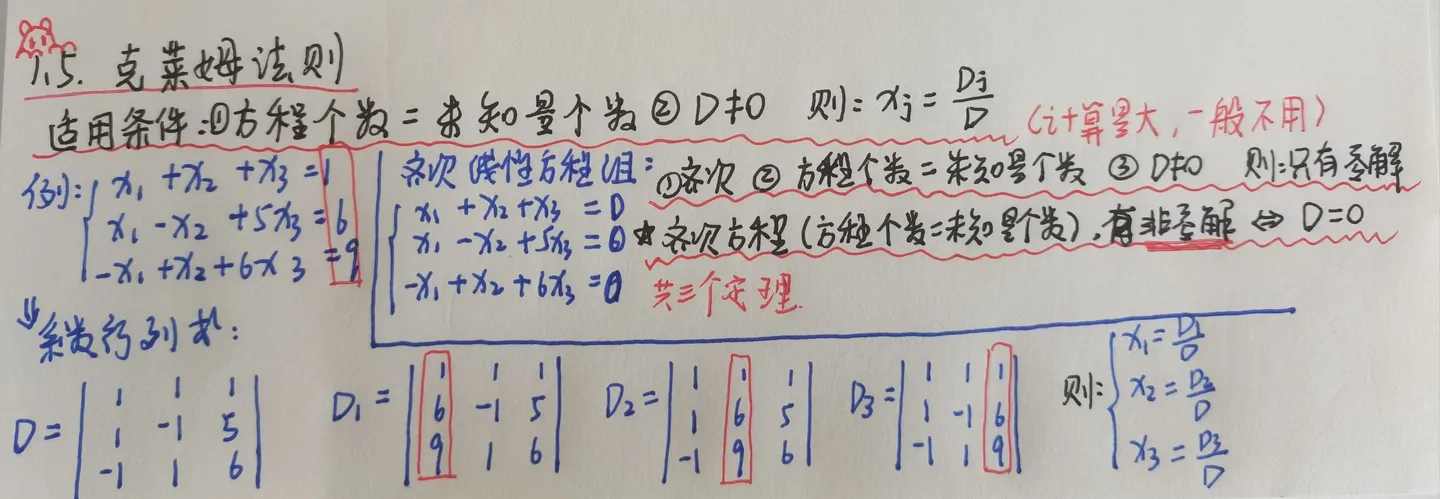 1.5. 克莱姆法则
适用条件:①方程个数=未知量个数 ② D≠0 则: xj = Dj/D (计算量大,一般不用)
例: x₁ +x₂ +x₃ =1
x₁ -x₂ +5x₃ =6
-x₁ +x₂ +6x₃ =9
齐次线性方程组: ①齐次 ② 方程个数=未知量个数 ③ D≠0 则:只有零解
x₁ +x₂ +x₃ =0
x₁ -x₂ +5x₃ =0
-x₁ +x₂ +6x₃ =0
*齐次方程(方程个数=未知量个数),有非零解 ⇔ D=0
共三个定理.
⇓系数行列式:
D= | 1 1 1 |
| 1 -1 5 |
| -1 1 6 |
D₁= | 1 1 1 |
| 6 -1 5 |
| 9 1 6 |
D₂= | 1 1 1 |
| 1 6 5 |
| -1 9 6 |
D₃= | 1 1 1 |
| 1 -1 6 |
| -1 1 9 |
则: x₁= D₁/D
x₂= D₂/D
x₃= D₃/D